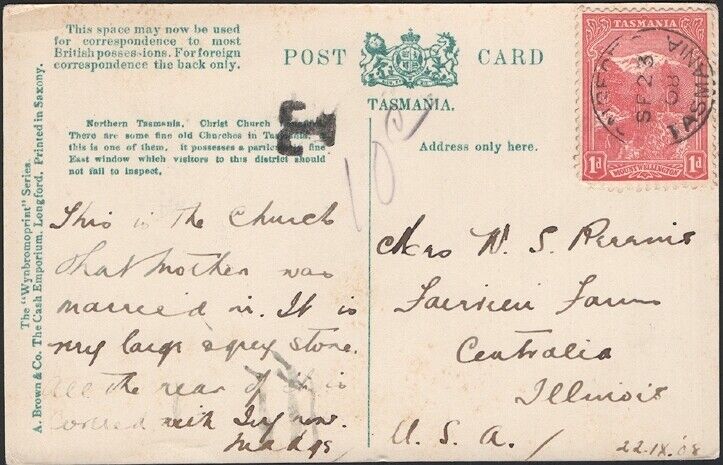 This space may now be used
for correspondence to most
British possessions. For foreign
correspondence the back only.
POST CARD
TASMANIA.
Northern Tasmania. Christ Church
There are some fine old Churches in
this is one of them. it possesses a fine
East window which visitors to this district should
not fail to inspect.
Address only here.
The "Wynbromoprint" Series.
A. Brown & Co. The Cash Emporium, Longford. Printed in Saxony.
TASMANIA
1d 1d
MOUNT WELLINGTON
SE 23
08
TASMANIA
This is the Church
that mother was
married in. It is
very large & grey stone.
all the rear of it is
covered with Ivy now.
Madge
Mrs W. S. Perrine
Fairview Farm
Centralia
Illinois
U. S. A.
22.IX.'08